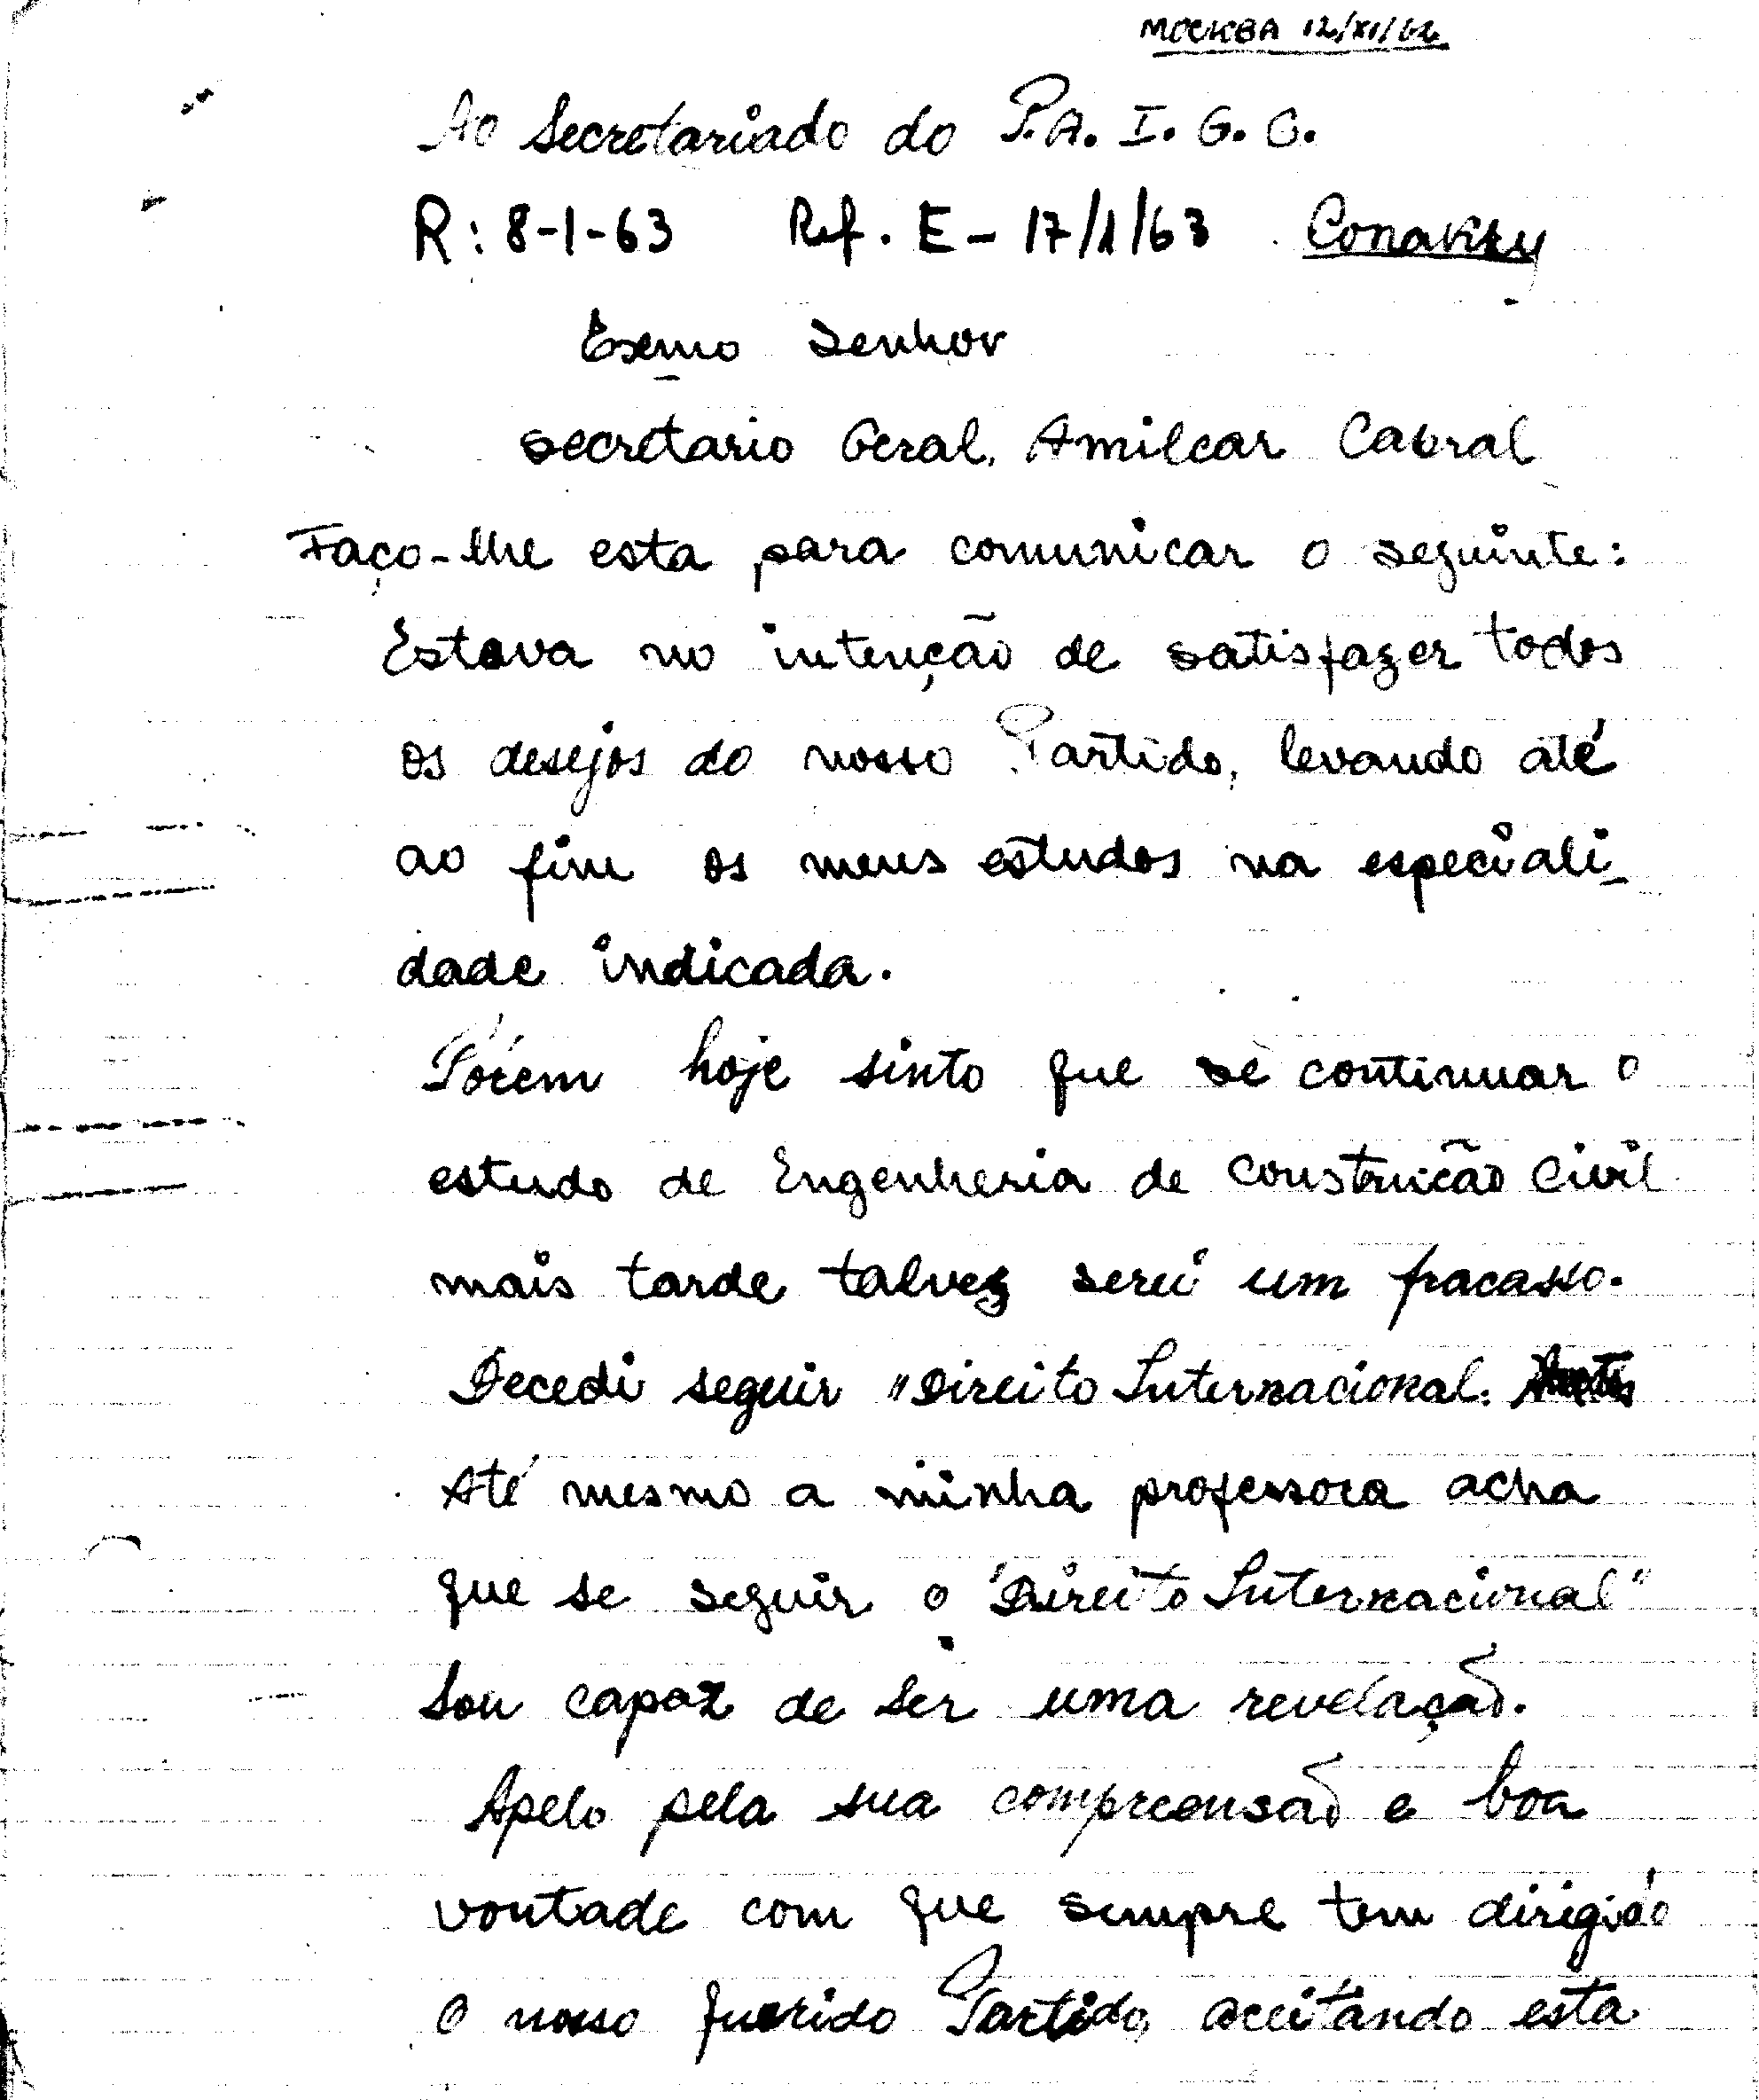 МОСКВА 12/XI/62
Ao Secretariado do P.A.I.G.C.
R: 8-1-63 Ref. E - 17/1/63 Conakry
Exemo Senhor
Secretario Geral, Amilcar Cabral
Faço-lhe esta para comunicar o seguinte:
Estava no intenção de satisfazer todos
os desejos do nosso Partido, levando até
ao fim os meus estudos na especiali-
dade indicada.
Pórém hoje sinto que se continuar o
estudo de Engenheria de construicão Civil
mais tarde talvez serei um fracasso.
Decedi seguir "Direito Internacional.
Até mesmo a minha professora acha
que se seguir o "Direito Internacional"
sou capaz de ser uma revelação.
Apelo pela sua compreensão e boa
vontade com que sempre tem dirigido
o nosso querido Partido, aceitando esta